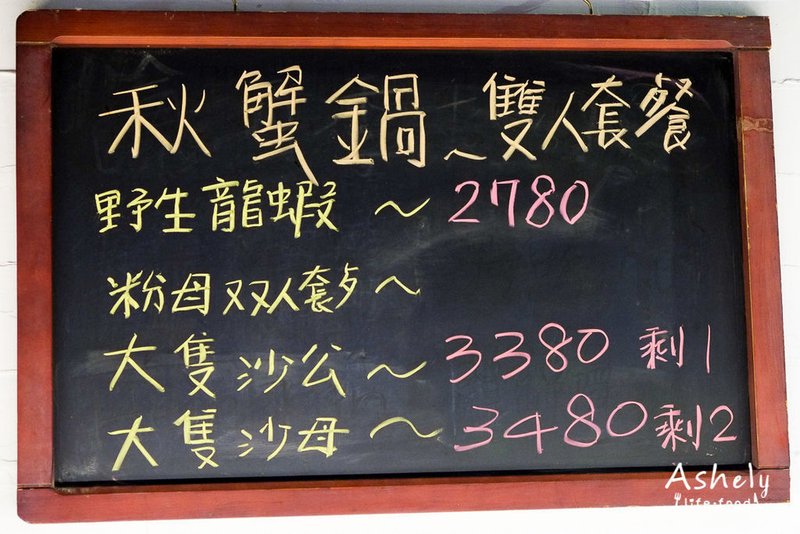 秋蟹鍋~雙人套餐
野生龍蝦~2780
粉母双人套歺~
大隻沙公~3380剩1
大隻沙母~3480剩2
Ashely
life.food